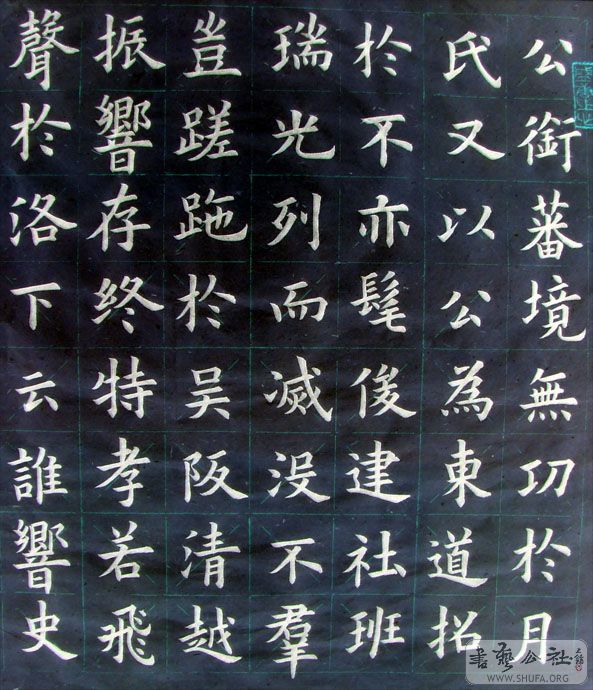 公銜蕃境無功於月
氏又以公為東道招
於不亦髦俊建社班
瑞光列而滅没不羣
豈蹉跎於吴阪清越
振響存终特孝若飛
聲於洛下云誰響史
書藝公社
WWW.SHUFA.ORG